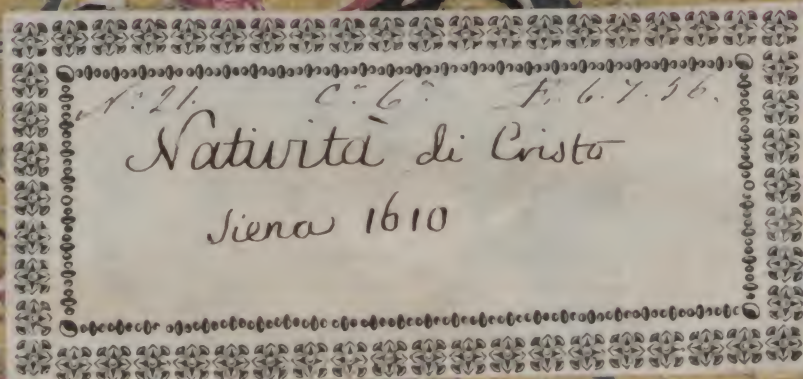 N.° 21. C.° 6.° F. 6. 7. 56.
Natività di Cristo
Siena 1610